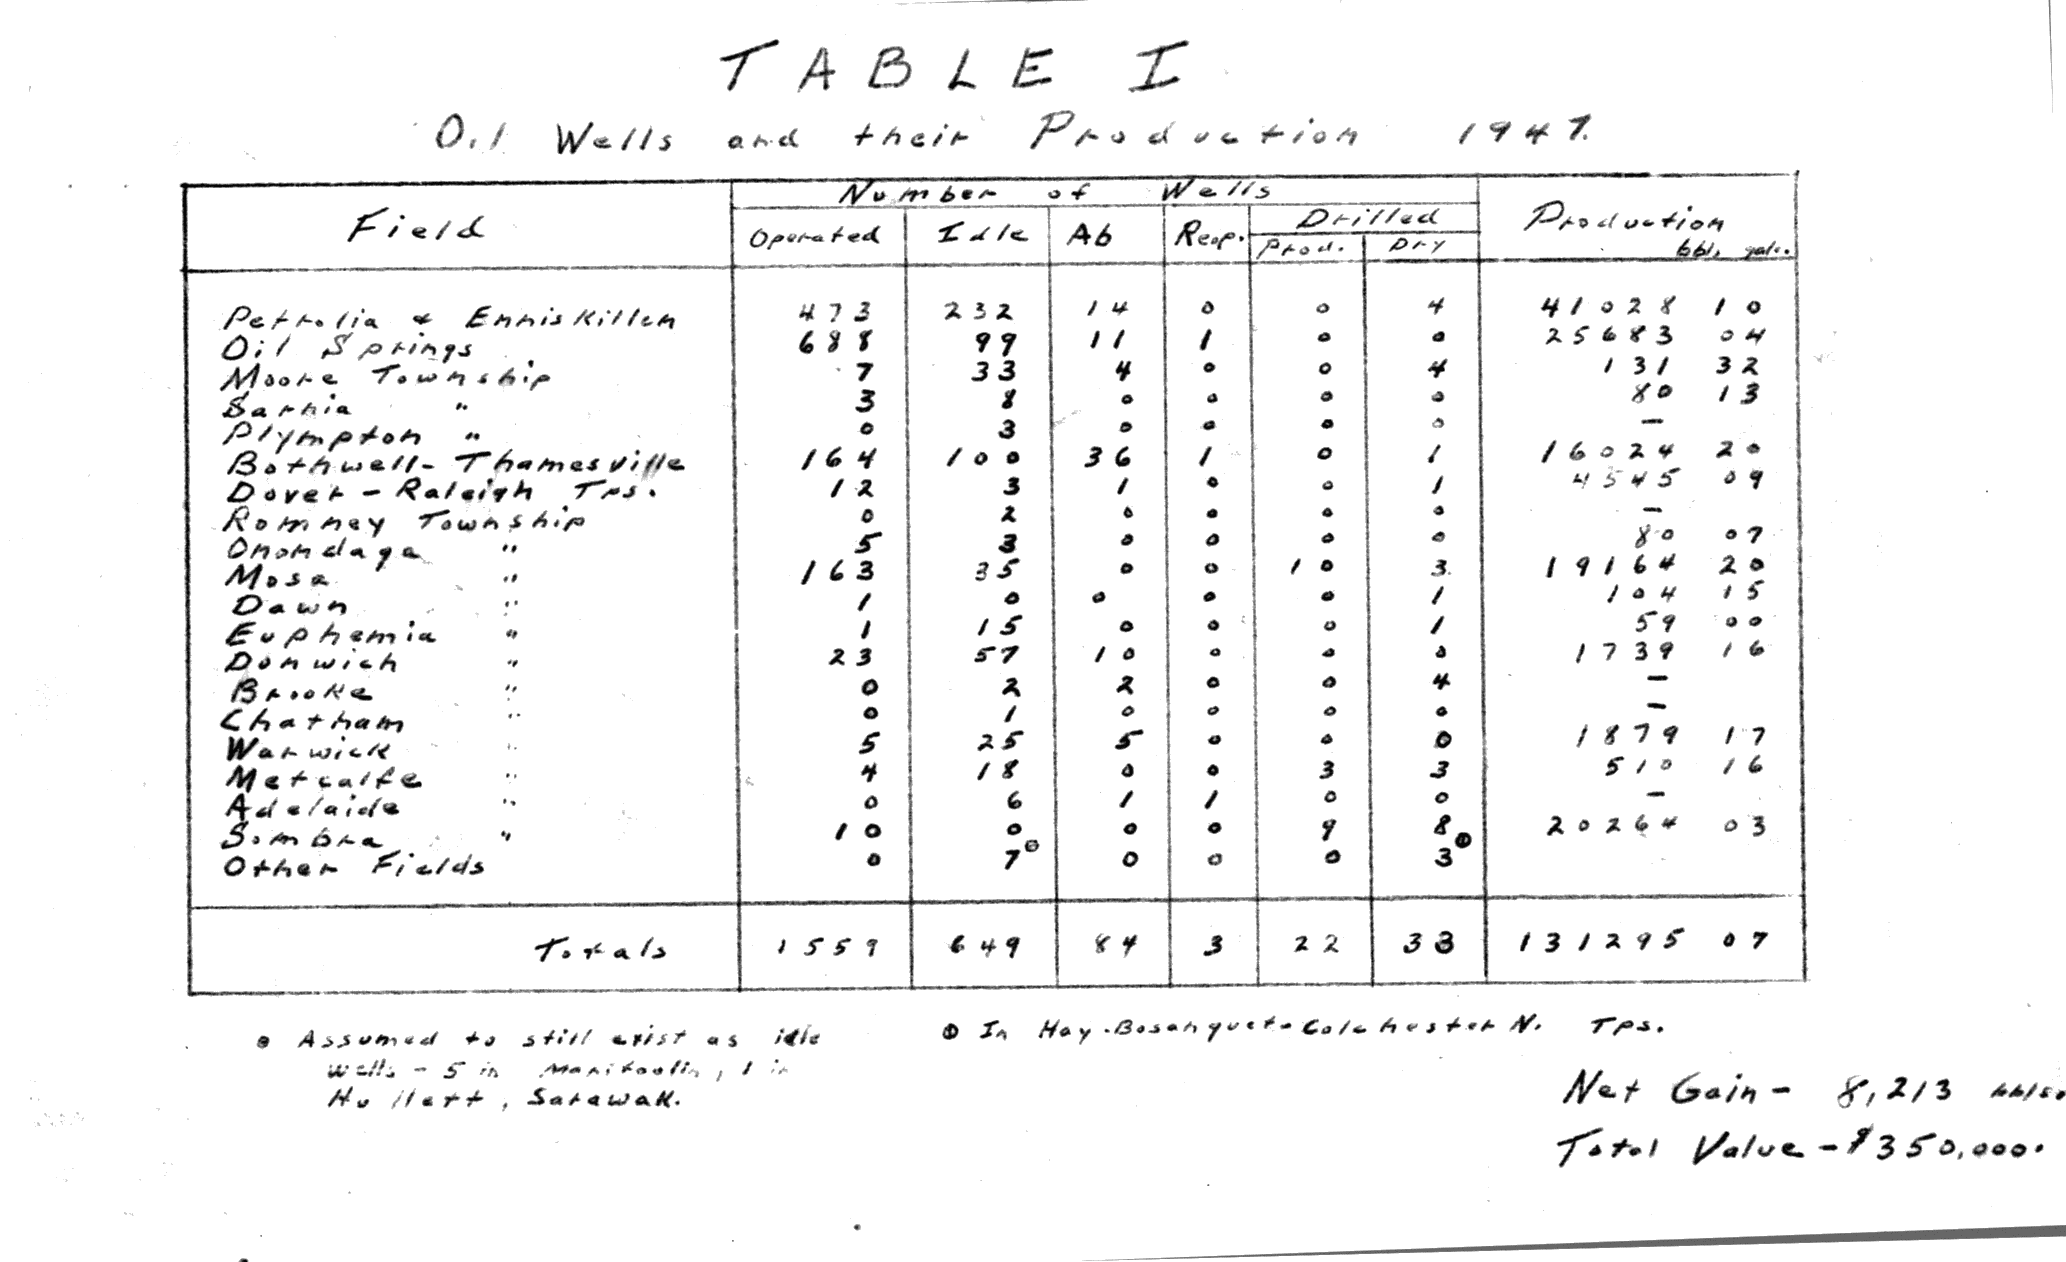 TABLE I
Oil Wells and their Production 1947.
Number of Wells
Field Operated Idle Ab Reop. Drilled Production
Prod. Dry bbl. gals.
Petrolia & Enniskillen 473 232 14 0 0 4 41028 10
Oil Springs 688 99 11 1 0 0 25683 04
Moore Township 7 33 4 0 0 4 131 32
Sarnia " 3 8 0 0 0 0 80 13
Plympton " 0 3 0 0 0 0 —
Bothwell - Thamesville 164 100 36 1 0 1 16024 20
Dover - Raleigh Tps. 12 3 1 0 0 1 4545 09
Romney Township 0 2 0 0 0 0 —
Onondaga " 5 3 0 0 0 0 80 07
Mosa " 163 35 0 0 10 3 19164 20
Dawn " 1 0 0 0 0 1 104 15
Euphemia " 1 15 0 0 0 1 59 00
Dunwich " 23 57 10 0 0 0 1739 16
Brooke " 0 2 2 0 0 4 —
Chatham " 0 1 0 0 0 0 —
Warwick " 5 25 5 0 0 0 1879 17
Metcalfe " 4 18 0 0 3 3 510 16
Adelaide " 0 6 1 1 0 0 —
Sombra " 10 0 0 0 9 8 20264 03
Other Fields 0 7 0 0 0 3
Totals 1559 649 84 3 22 33 131295 07
Assumed to still exist as idle
wells - 5 in Manitoulin, 1 in
Hullett, Sarawak.
In Hay - Bosanquet - Colchester N. Tps.
Net Gain - 8,213 bbls.
Total Value - $350,000.